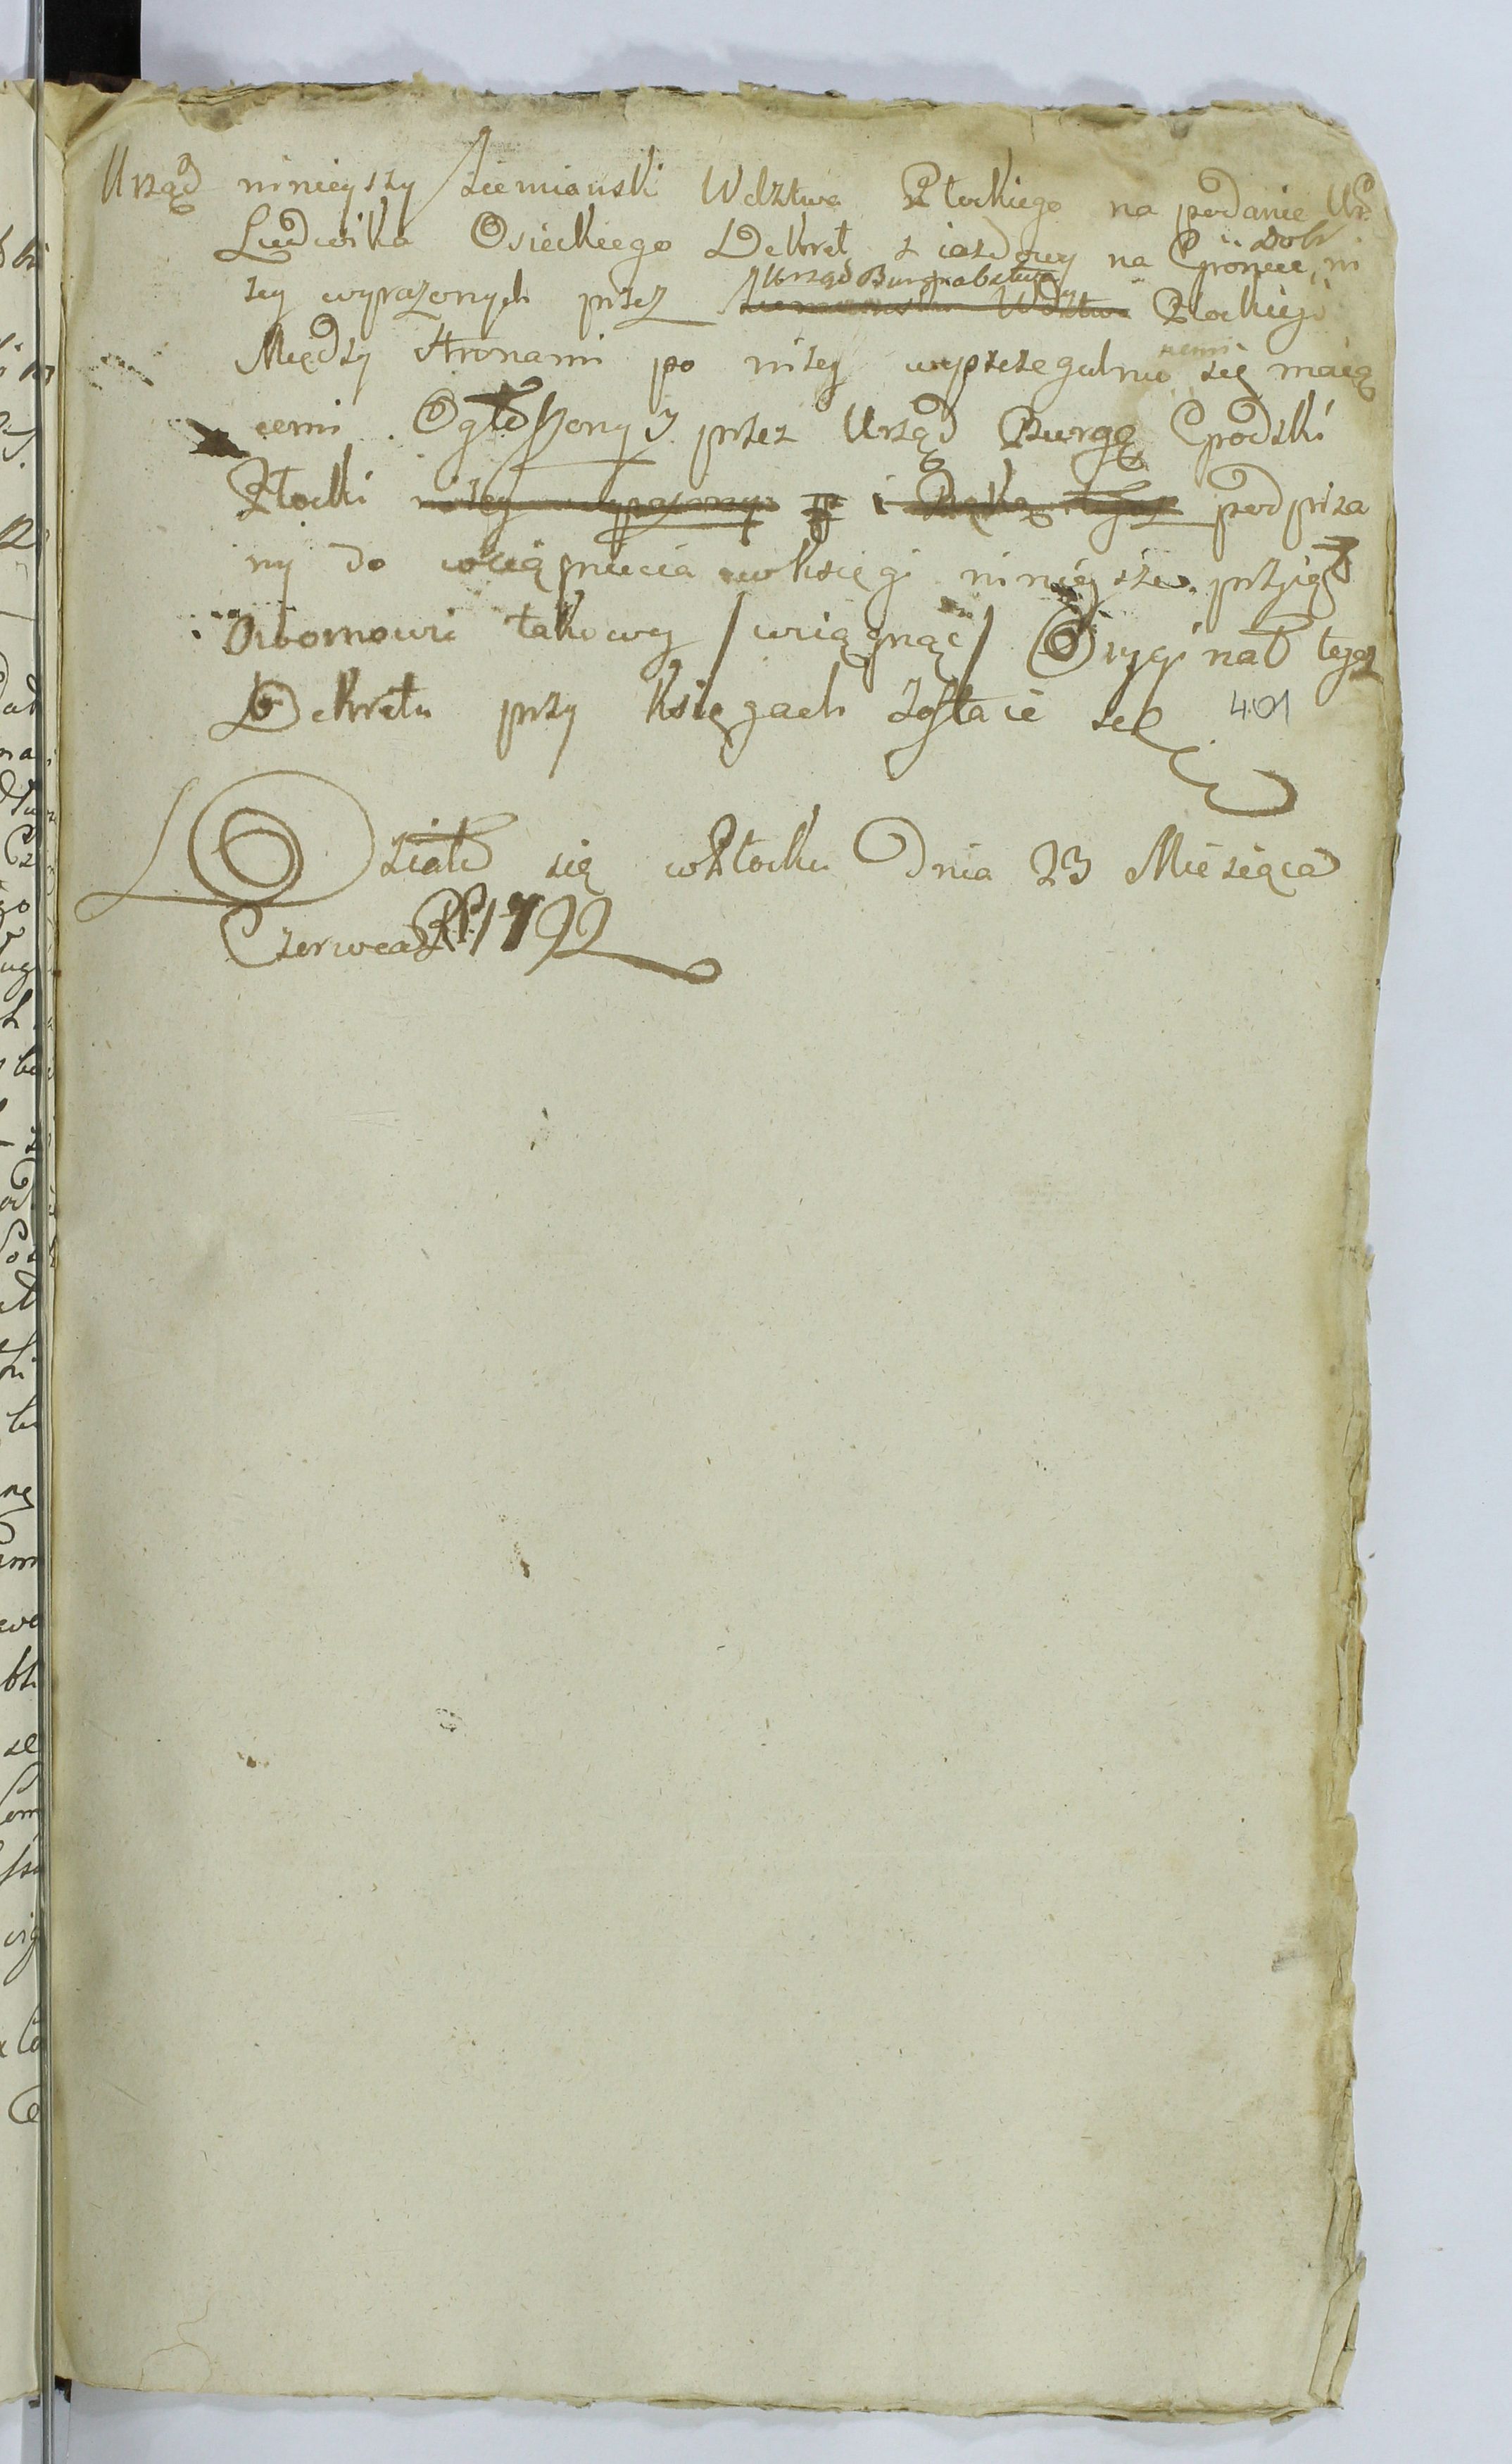 Urząd ninieyszy Ziemianski Wdztwa Płockiego na podanie Ur.
Ludwika Osieckiego Dekret ziazdowy na Groncie Dobr ni
zey wyrazonych przez Urząd Burgrabstwa Ziemianski Wdztwa Płockiego
Między stronami po nizey wyszczegulnio nemi się maią
cemi Ogłoszony y przez Urząd Burgą Grodzki
Płocki nizey wyrazony i podpisa
ny do wciągnięcia w księgi ninieysze przyiął
takowy wciągnąć Oryginał tegoz
Dekretu przy księgach zostaie się 401
Działo się w Płocku Dnia 23 Miesiąca
Czerwca R.P. 1792